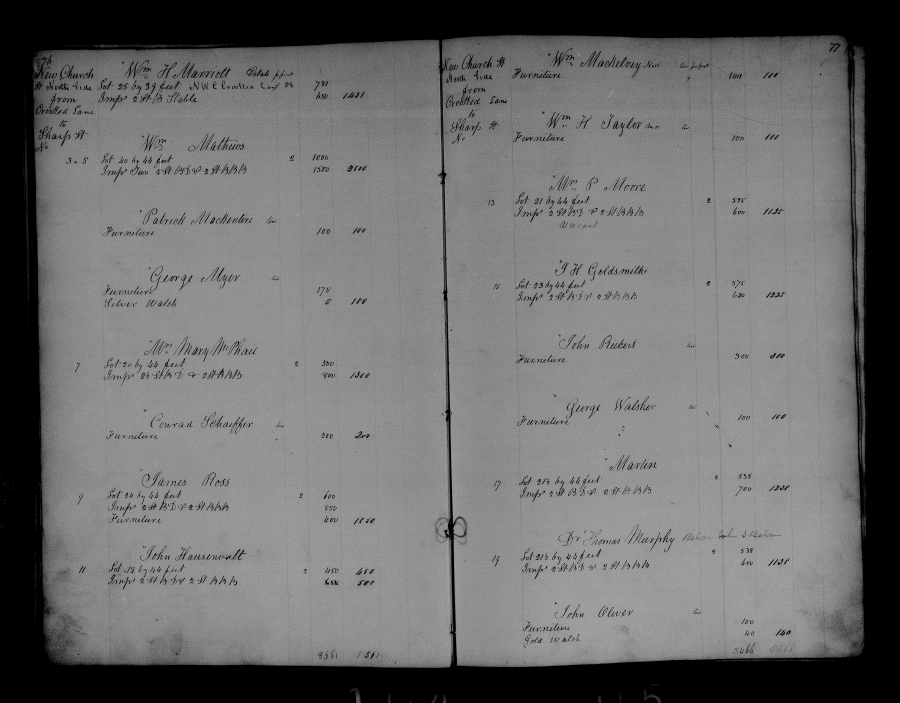 76
New Church
St North Side
from
Crooked Lane
to
Sharp St
No
Wm H Marriott Estate
Lot 25 by 39 feet N W C Crooked Lane 781
Imps 2 St B Stable 650 1431
Wm Mathews
3 & 5 Lot 40 by 44 feet 2 1000
Imps Two 2 St B D & 2 St B B B 1500 2500
Patrick Mackentire
Furniture 100 100
George Myer
Furniture 175
Silver Watch 5 180
Mrs Mary McPhail
7 Lot 20 by 44 feet 2 500
Imps 2½ St B D & 2 St B B B 800 1300
Conrad Schaeffer
Furniture 200 200
James Ross
9 Lot 24 by 44 feet 2 600
Imps 2 St B D & 2 St B B B 850
Furniture 400 1850
John Hausenwalt
11 Lot 18 by 44 feet 2 450 450
Imps 2 St B D & 2 St B B B 500
77
New Church St
North Side
from
Crooked Lane
to
Sharp St
No
Wm Mackelvey
Furniture 100 100
Wm H Taylor
Furniture 100 100
Wm P Moore
13 Lot 21 by 44 feet 2 525
Imps 2 St B D & 2 St B B B 600 1125
Vacant
J H Goldsmith
15 Lot 23 by 44 feet 2 575
Imps 2 St B D & 2 St B B B 650 1225
John Reebert
Furniture 300 300
George Walsher
Furniture 100 100
Marten
17 Lot 21½ by 44 feet 2 538
Imps 2 St B D & 2 St B B B 700 1238
Dr Thomas Murphy
19 Lot 21½ by 44 feet 2 538
Imps 2 St B D & 2 St B B B 600 1138
John Oliver
Furniture 100
Gold Watch 40 140
5466 5466